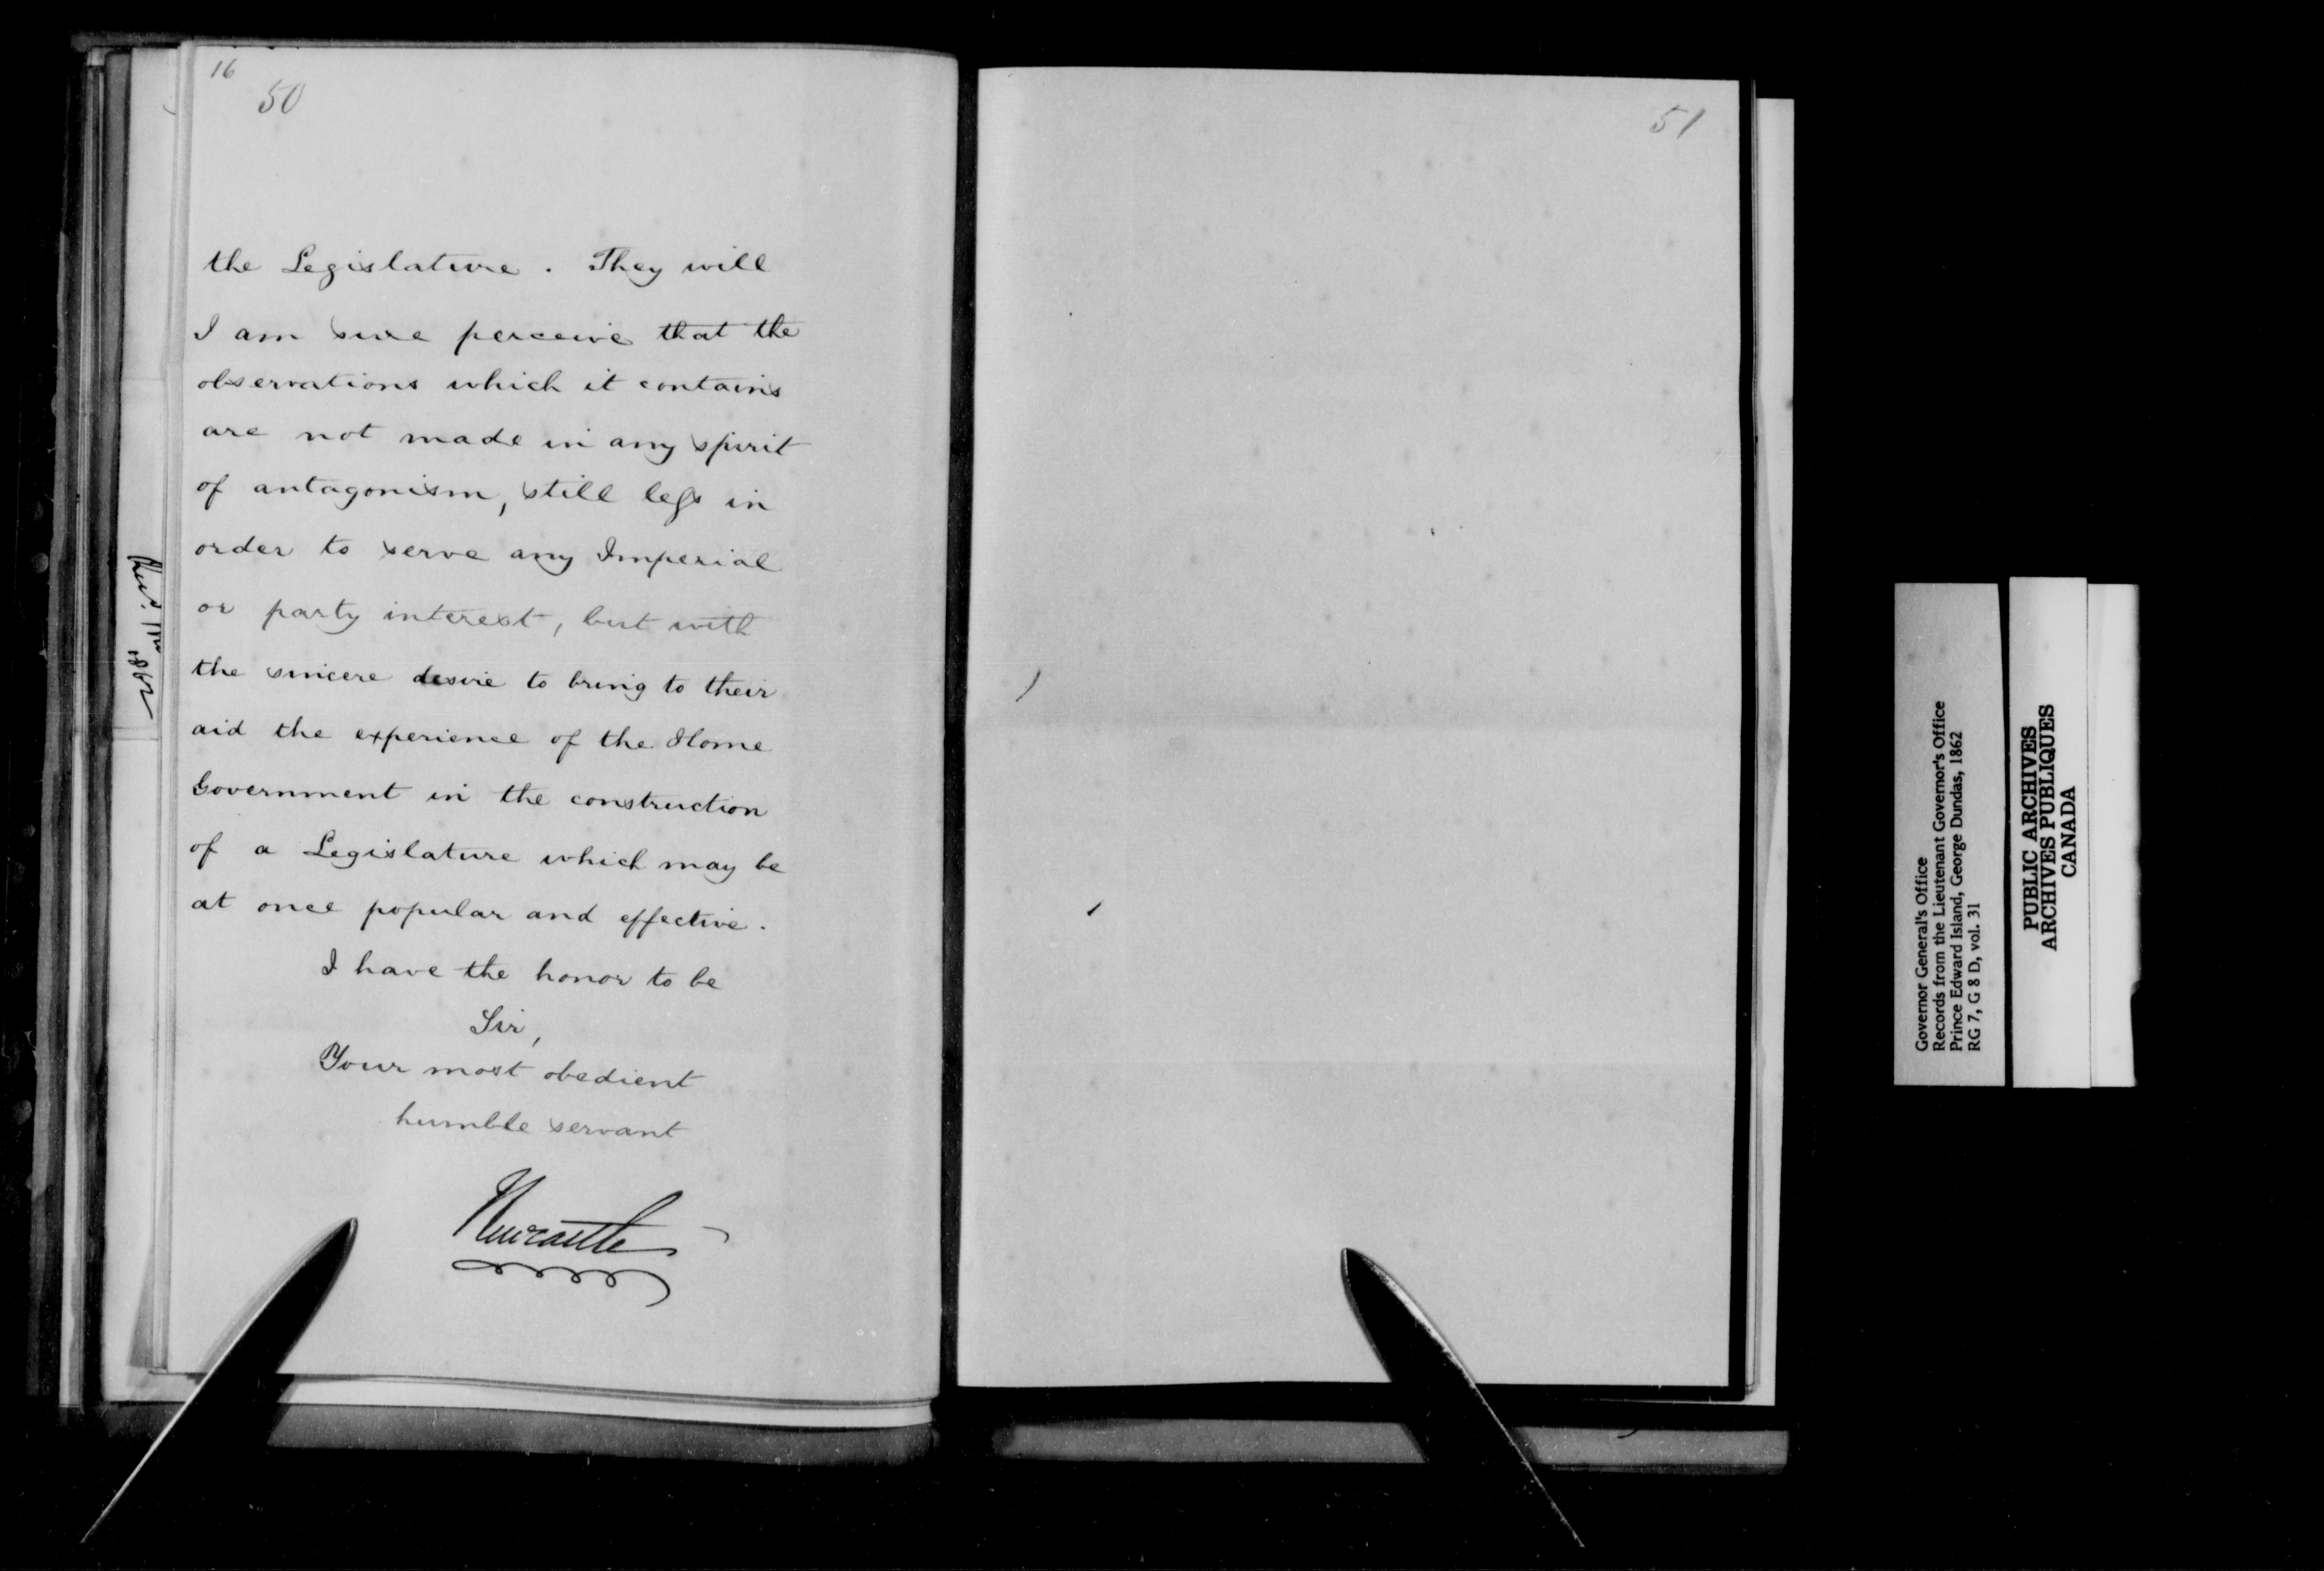 16
50
the Legislature. They will
I am sure perceive that the
observations which it contains
are not made in any spirit
of antagonism, still less in
order to serve any Imperial
or party interest, but with
the sincere desire to bring to their
aid the experience of the Home
Government in the construction
of a Legislature which may be
at once popular and effective.
I have the honor to be
Sir,
Your most obedient
humble servant
Newcastle
1862
51
Governor General's Office
Records from the Lieutenant Governor's Office
Prince Edward Island, George Dundas, 1862
RG 7, G 8 D, vol. 31
PUBLIC ARCHIVES
ARCHIVES PUBLIQUES
CANADA